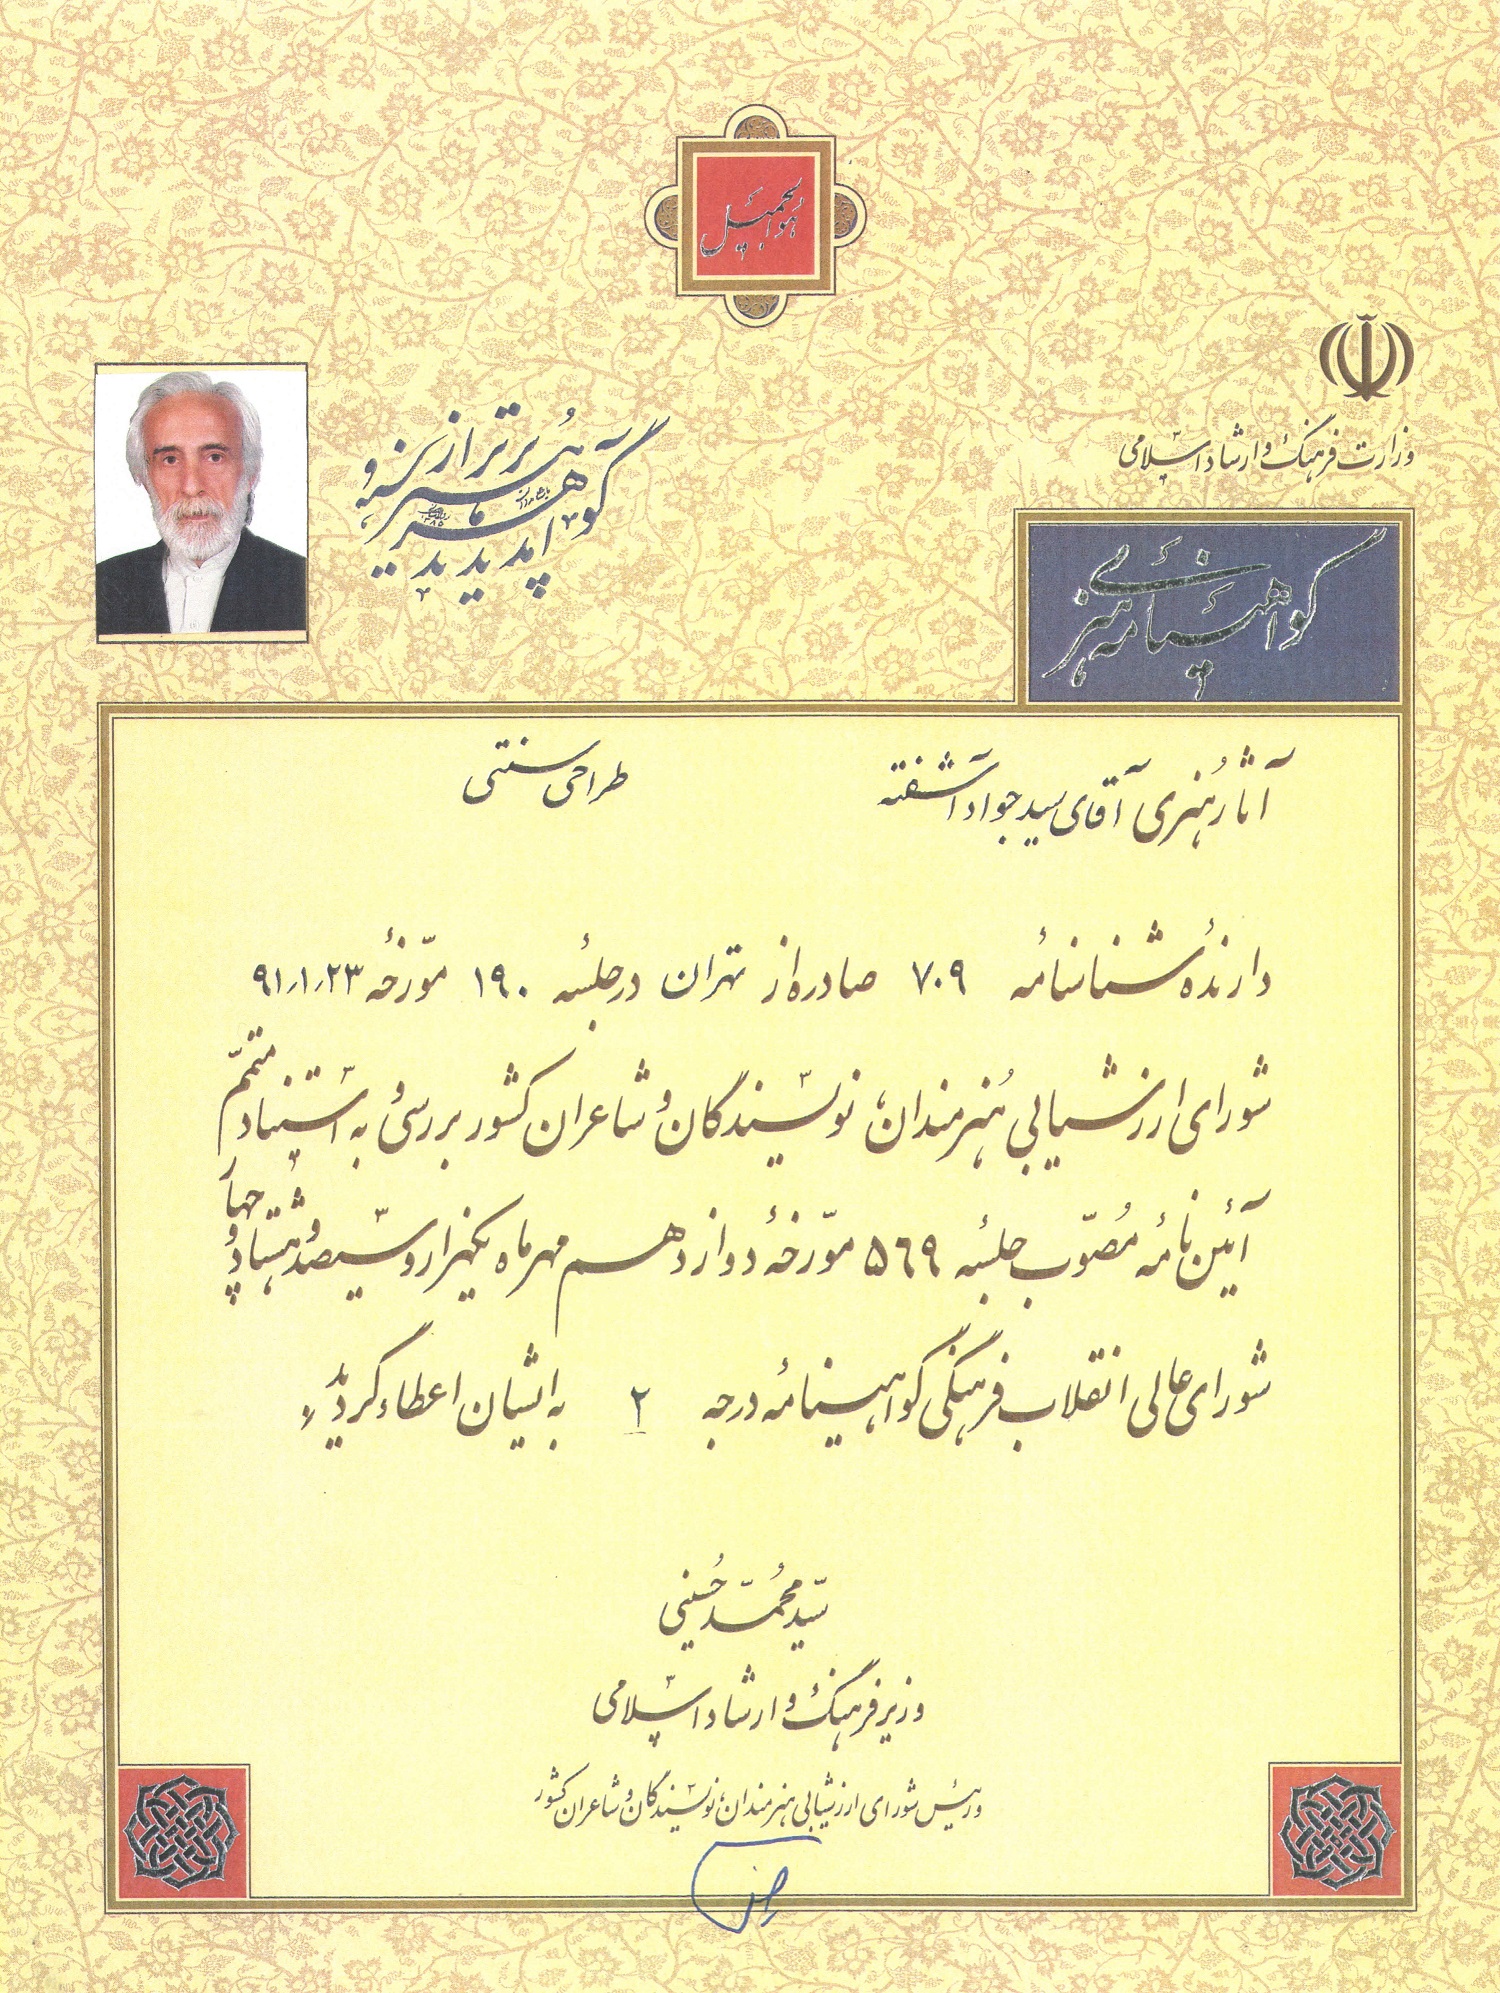 هوالجمیل
وزارت فرهنگ و ارشاد اسلامی
هنر برتر از
گوهر آمد پدید
گواهینامه هنری
آثار هنری آقای سید جواد آشفته طراحی سنتی
دارندهٔ شناسنامهٔ ۷۰۹ صادره از تهران در جلسهٔ ۱۹۰ مورّخهٔ ۹۱/۱/۲۳
شورای ارزشیابی هُنرمندان، نویسندگان و شاعران کشور بررسی و به استناد متمّم
آئین نامهٔ مُصوّب جلسهٔ ۵۶۹ مورّخهٔ دوازدهم مهرماه یکهزار و سیصد و هشتاد و چهار
شورای عالی انقلاب فرهنگی گواهینامهٔ درجه ۲ به ایشان اعطاء گردید.
سیّد مُحمّد حُسینی
وزیر فرهنگ و ارشاد اسلامی
و رئیس شورای ارزشیابی هنرمندان، نویسندگان و شاعران کشور